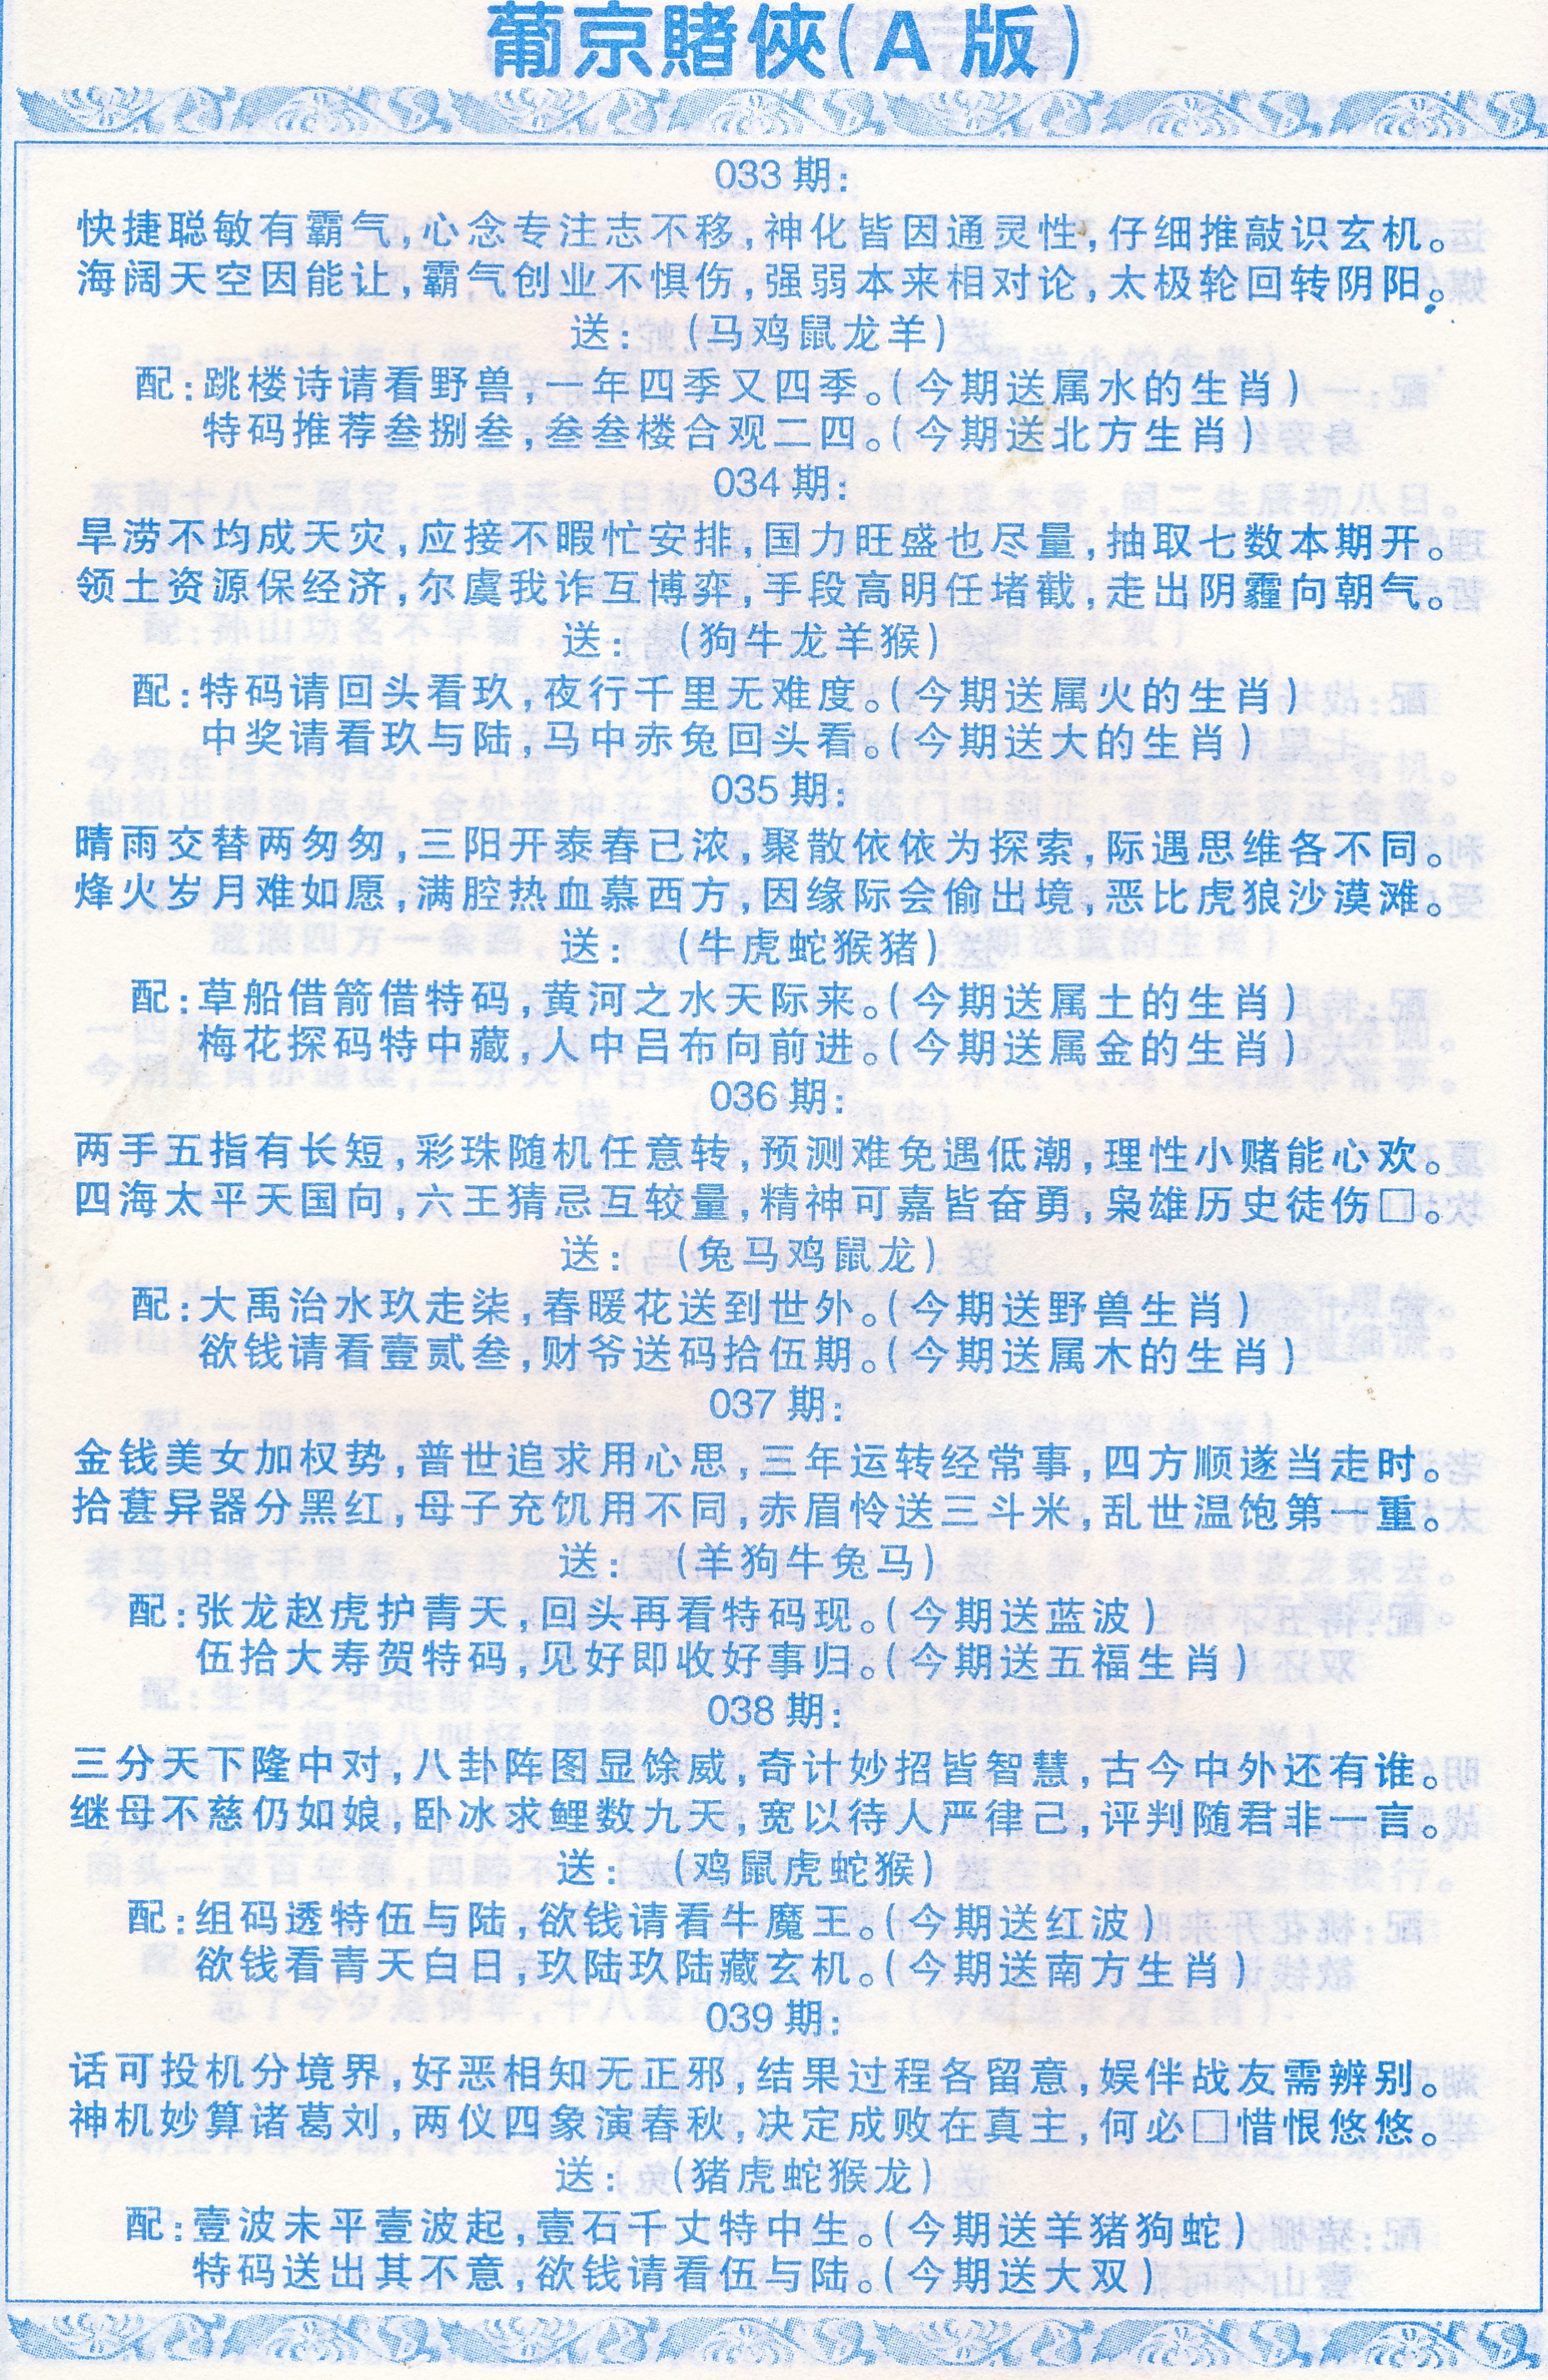 葡京賭俠(A 版)
033期:
快捷聪敏有霸气,心念专注志不移,神化皆因通灵性,仔细推敲识玄机。
海阔天空因能让,霸气创业不惧伤,强弱本来相对论,太极轮回转阴阳。
送: (马鸡鼠龙羊)
配:跳楼诗请看野兽,一年四季又四季。(今期送属水的生肖)
特码推荐叁捌叁,叁叁楼合观二四。(今期送北方生肖)
034期:
旱涝不均成天灾,应接不暇忙安排,国力旺盛也尽量,抽取七数本期开。
领土资源保经济,尔虞我诈互博弈,手段高明任堵截,走出阴霾向朝气。
送: (狗牛龙羊猴)
配:特码请回头看玖,夜行千里无难度。(今期送属火的生肖)
中奖请看玖与陆,马中赤兔回头看。(今期送大的生肖)
035期:
晴雨交替两匆匆,三阳开泰春已浓,聚散依依为探索,际遇思维各不同。
烽火岁月难如愿,满腔热血慕西方,因缘际会偷出境,恶比虎狼沙漠滩。
送: (牛虎蛇猴猪)
配:草船借箭借特码,黄河之水天际来。(今期送属土的生肖)
梅花探码特中藏,人中吕布向前进。(今期送属金的生肖)
036期:
两手五指有长短,彩珠随机任意转,预测难免遇低潮,理性小赌能心欢。
四海太平天国向,六王猜忌互较量,精神可嘉皆奋勇,枭雄历史徒伤□。
送: (兔马鸡鼠龙)
配:大禹治水玖走柒,春暖花送到世外。(今期送野兽生肖)
欲钱请看壹贰叁,财爷送码拾伍期。(今期送属木的生肖)
037期:
金钱美女加权势,普世追求用心思,三年运转经常事,四方顺遂当走时。
拾葚异器分黑红,母子充饥用不同,赤眉怜送三斗米,乱世温饱第一重。
送: (羊狗牛兔马)
配:张龙赵虎护青天,回头再看特码现。(今期送蓝波)
伍拾大寿贺特码,见好即收好事归。(今期送五福生肖)
038期:
三分天下隆中对,八卦阵图显馀威,奇计妙招皆智慧,古今中外还有谁。
继母不慈仍如娘,卧冰求鲤数九天,宽以待人严律己,评判随君非一言。
送: (鸡鼠虎蛇猴)
配:组码透特伍与陆,欲钱请看牛魔王。(今期送红波)
欲钱看青天白日,玖陆玖陆藏玄机。(今期送南方生肖)
039期:
话可投机分境界,好恶相知无正邪,结果过程各留意,娱伴战友需辨别。
神机妙算诸葛刘,两仪四象演春秋,决定成败在真主,何必□惜恨悠悠。
送: (猪虎蛇猴龙)
配:壹波未平壹波起,壹石千丈特中生。(今期送羊猪狗蛇)
特码送出其不意,欲钱请看伍与陆。(今期送大双)